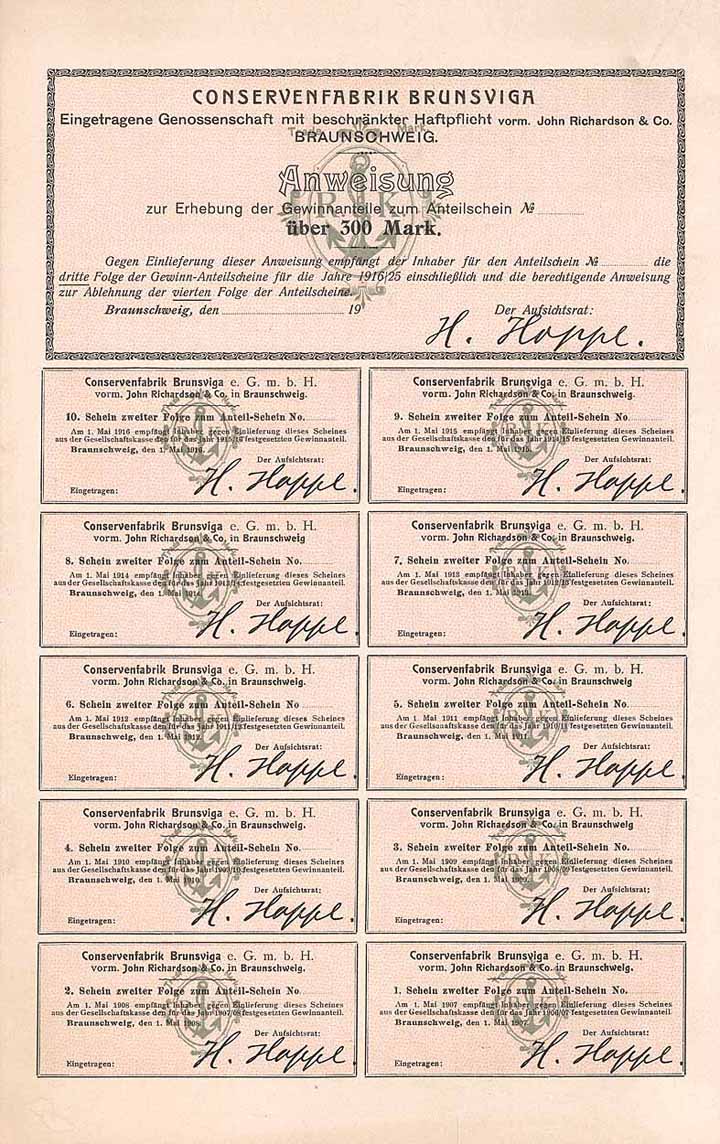 CONSERVENFABRIK BRUNSVIGA
Eingetragene Genossenschaft mit beschränkter Haftpflicht vorm. John Richardson & Co.
Trade Mark
BRAUNSCHWEIG.
Anweisung
R K
zur Erhebung der Gewinnanteile zum Anteilschein №
über 300 Mark.
Gegen Einlieferung dieser Anweisung empfängt der Inhaber für den Anteilschein № die
dritte Folge der Gewinn-Anteilscheine für die Jahre 1916/25 einschließlich und die berechtigende Anweisung
zur Ablehnung der vierten Folge der Anteilscheine.
Braunschweig, den 19 Der Aufsichtsrat:
H. Hoppe.
Conservenfabrik Brunsviga e. G. m. b. H.
vorm. John Richardson & Co. in Braunschweig.
10. Schein zweiter Folge zum Anteil-Schein No.
Am 1. Mai 1916 empfängt Inhaber gegen Einlieferung dieses Scheines
aus der Gesellschaftskasse den für das Jahr 1915/16 festgesetzten Gewinnanteil.
Braunschweig, den 1. Mai 1916.
Der Aufsichtsrat:
H. Hoppe.
Eingetragen:
Conservenfabrik Brunsviga e. G. m. b. H.
vorm. John Richardson & Co. in Braunschweig.
9. Schein zweiter Folge zum Anteil-Schein No.
Am 1. Mai 1915 empfängt Inhaber gegen Einlieferung dieses Scheines
aus der Gesellschaftskasse den für das Jahr 1914/15 festgesetzten Gewinnanteil.
Braunschweig, den 1. Mai 1915.
Der Aufsichtsrat:
H. Hoppe.
Eingetragen:
Conservenfabrik Brunsviga e. G. m. b. H.
vorm. John Richardson & Co. in Braunschweig.
8. Schein zweiter Folge zum Anteil-Schein No.
Am 1. Mai 1914 empfängt Inhaber gegen Einlieferung dieses Scheines
aus der Gesellschaftskasse den für das Jahr 1913/14 festgesetzten Gewinnanteil.
Braunschweig, den 1. Mai 1914.
Der Aufsichtsrat:
H. Hoppe.
Eingetragen:
Conservenfabrik Brunsviga e. G. m. b. H.
vorm. John Richardson & Co. in Braunschweig
7. Schein zweiter Folge zum Anteil-Schein No.
Am 1. Mai 1913 empfängt Inhaber gegen Einlieferung dieses Scheines
aus der Gesellschaftskasse den für das Jahr 1912/13 festgesetzten Gewinnanteil.
Braunschweig, den 1. Mai 1913.
Der Aufsichtsrat:
H. Hoppe.
Eingetragen:
Conservenfabrik Brunsviga e. G. m. b. H.
vorm. John Richardson & Co. in Braunschweig.
6. Schein zweiter Folge zum Anteil-Schein No
Am 1. Mai 1912 empfängt Inhaber gegen Einlieferung dieses Scheines
aus der Gesellschaftskasse den für das Jahr 1911/12 festgesetzten Gewinnanteil.
Braunschweig, den 1. Mai 1912.
Der Aufsichtsrat:
H. Hoppe.
Eingetragen:
Conservenfabrik Brunsviga e. G. m. b. H.
vorm. John Richardson & Co. in Braunschweig
5. Schein zweiter Folge zum Anteil-Schein No.
Am 1. Mai 1911 empfängt Inhaber gegen Einlieferung dieses Scheines
aus der Gesellschaftskasse den für das Jahr 1910/11 festgesetzten Gewinnanteil.
Braunschweig, den 1. Mai 1911.
Der Aufsichtsrat:
H. Hoppe.
Eingetragen:
Conservenfabrik Brunsviga e. G. m. b. H.
vorm. John Richardson & Co. in Braunschweig.
4. Schein zweiter Folge zum Anteil-Schein No.
Am 1. Mai 1910 empfängt Inhaber gegen Einlieferung dieses Scheines
aus der Gesellschaftskasse den für das Jahr 1909/10 festgesetzten Gewinnanteil.
Braunschweig, den 1. Mai 1910.
Der Aufsichtsrat:
H. Hoppe.
Eingetragen:
Conservenfabrik Brunsviga e. G. m. b. H.
vorm. John Richardson & Co. in Braunschweig
3. Schein zweiter Folge zum Anteil-Schein No.
Am 1. Mai 1909 empfängt Inhaber gegen Einlieferung dieses Scheines
aus der Gesellschaftskasse den für das Jahr 1908/09 festgesetzten Gewinnanteil.
Braunschweig, den 1. Mai 1909.
Der Aufsichtsrat:
H. Hoppe.
Eingetragen:
Conservenfabrik Brunsviga e. G. m. b. H.
vorm. John Richardson & Co. in Braunschweig.
2. Schein zweiter Folge zum Anteil-Schein No.
Am 1. Mai 1908 empfängt Inhaber gegen Einlieferung dieses Scheines
aus der Gesellschaftskasse den für das Jahr 1907/08 festgesetzten Gewinnanteil.
Braunschweig, den 1. Mai 1908.
Der Aufsichtsrat:
H. Hoppe.
Eingetragen:
Conservenfabrik Brunsviga e. G. m. b. H.
vorm. John Richardson & Co. in Braunschweig.
1. Schein zweiter Folge zum Anteil-Schein No.
Am 1. Mai 1907 empfängt Inhaber gegen Einlieferung dieses Scheines
aus der Gesellschaftskasse den für das Jahr 1906/07 festgesetzten Gewinnanteil.
Braunschweig, den 1. Mai 1907.
Der Aufsichtsrat:
H. Hoppe.
Eingetragen: